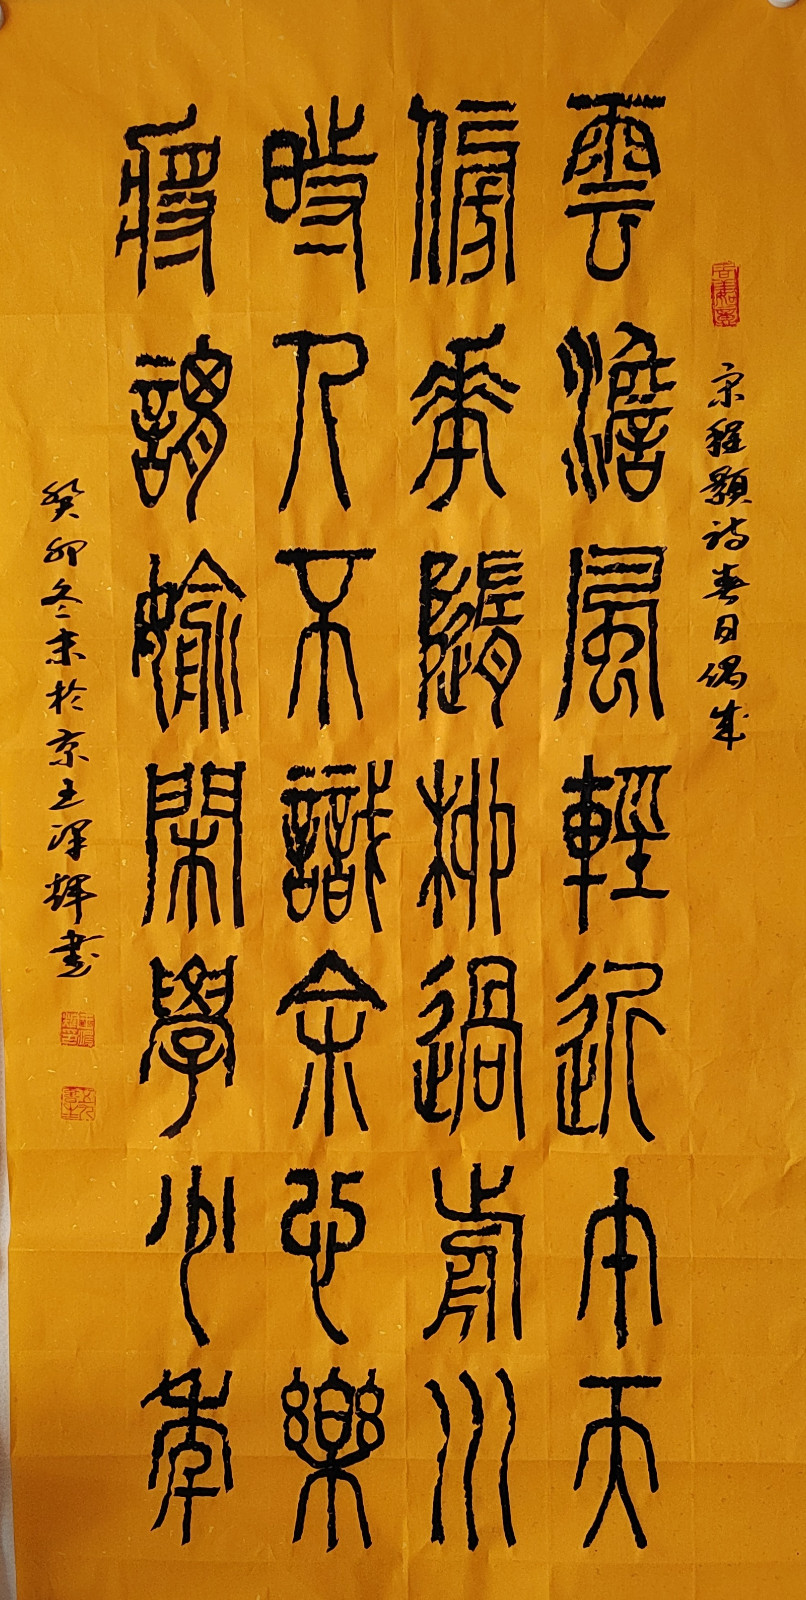 宋程顥詩春日偶成
雲澹風輕近午天
傍華隨柳過前川
時人不識余心樂
將謂媮閑學少年
癸卯冬末於京王澤輝書